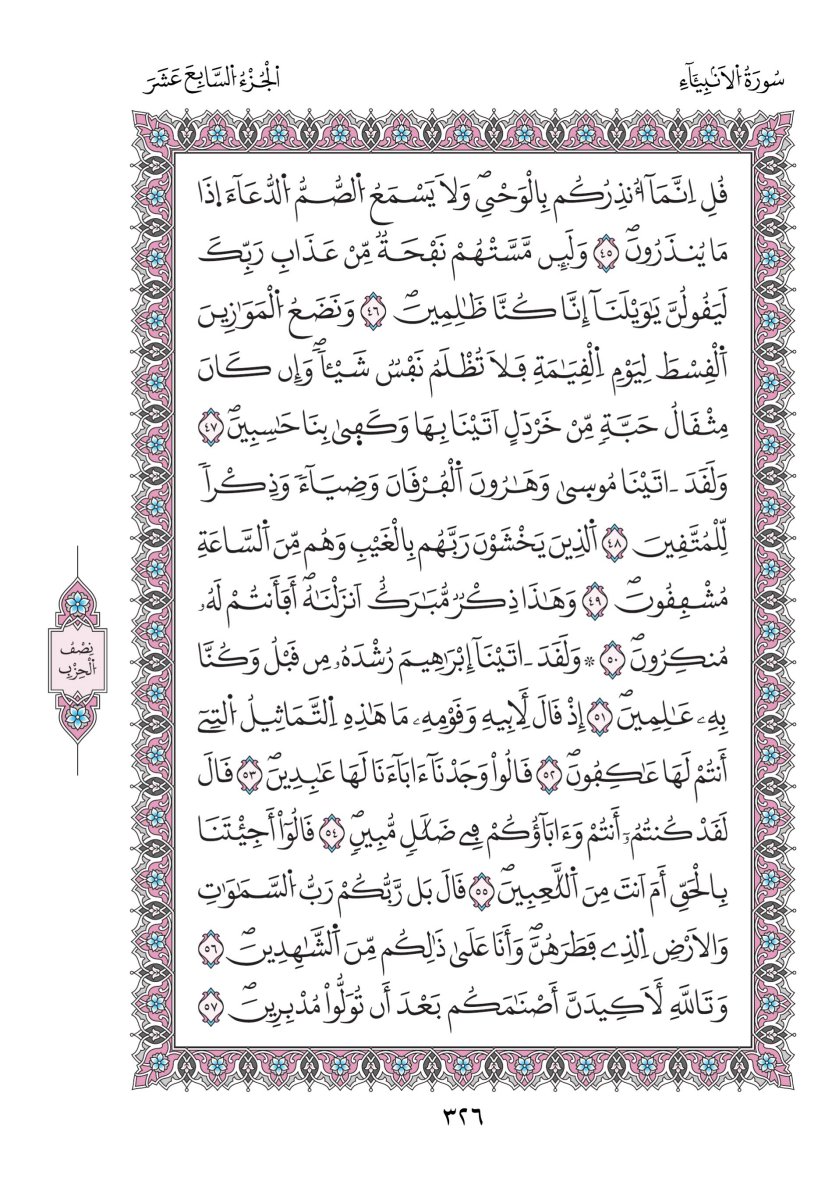 سُورَةُ الْأَنۢبِيَآءِ
الْجُزْءُ السَّابِعَ عَشَرَ
قُلِ اِنَّمَآ أُنذِرُكُم بِالْوَحْيِۖ وَلَا يَسْمَعُ الصُّمُّ الدُّعَآءَ اِذَا
مَا يُنذَرُونَۖ ٤٥ وَلَئِن مَّسَّتْهُمْ نَفْحَةٌ مِّنْ عَذَابِ رَبِّكَ
لَيَقُولُنَّ يَٰوَيْلَنَآ إِنَّا كُنَّا ظَٰلِمِينَۖ ٤٦ وَنَضَعُ الْمَوَٰزِينَ
اَلْقِسْطَ لِيَوْمِ اِلْقِيَٰمَةِ فَلَا تُظْلَمُ نَفْسٌ شَيْـٔاٗۖ وَإِن كَانَ
مِثْقَالُ حَبَّةٖ مِّنْ خَرْدَلٍ اَتَيْنَا بِهَا وَكَفَىٰ بِنَا حَٰسِبِينَۖ ٤٧
وَلَقَدَ اٰتَيْنَا مُوسَىٰ وَهَٰرُونَ اَلْفُرْقَانَ وَضِيَآءٗ وَذِكْراٗ
لِّلْمُتَّقِينَ ٤٨ اَلذِينَ يَخْشَوْنَ رَبَّهُم بِالْغَيْبِ وَهُم مِّنَ اَلسَّاعَةِ
مُشْفِقُونَۖ ٤٩ وَهَٰذَا ذِكْرٞ مُّبَٰرَكٌ اَنزَلْنَٰهُۖ أَفَأَنتُمْ لَهُۥ
مُنكِرُونَۖ ٥٠ ۞ وَلَقَدَ اٰتَيْنَآ إِبْرَٰهِيمَ رُشْدَهُۥ مِن قَبْلُ وَكُنَّا
بِهِۦ عَٰلِمِينَۖ ٥١ إِذْ قَالَ لِأَبِيهِ وَقَوْمِهِۦ مَا هَٰذِهِ اِلتَّمَاثِيلُ اُلتِےٓ
أَنتُمْ لَهَا عَٰكِفُونَۖ ٥٢ قَالُواْ وَجَدْنَآ ءَابَآءَنَا لَهَا عَٰبِدِينَۖ ٥٣ قَالَ
لَقَدْ كُنتُمُۥٓ أَنتُمْ وَءَابَآؤُكُمْ فِے ضَلَٰلٖ مُّبِينٖۖ ٥٤ قَالُوٓاْ أَجِئْتَنَا
بِالْحَقِّ أَمَ اَنتَ مِنَ اَللَّٰعِبِينَۖ ٥٥ قَالَ بَل رَّبُّكُمْ رَبُّ السَّمَٰوَٰتِ
وَالْأَرْضِ اِلذِے فَطَرَهُنَّۖ وَأَنَا عَلَىٰ ذَٰلِكُم مِّنَ اَلشَّٰهِدِينَۖ ٥٦
وَتَاللَّهِ لَأَكِيدَنَّ أَصْنَٰمَكُم بَعْدَ أَن تُوَلُّواْ مُدْبِرِينَۖ ٥٧
نِصْفُ
الْحِزْبِ
٣٢٦